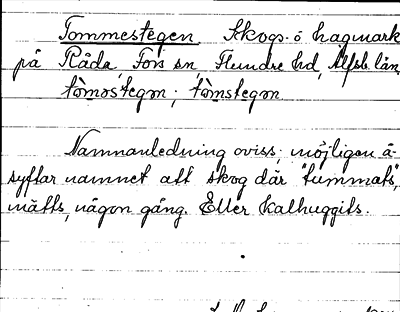 Tommestegen Skogs- o hagmark
på Råda, Fors sn, Flundre hd, Älfsb. län,
tòmostegɷn; tòmstegɷn
Namnanledning oviss; möjligen å-
syftar namnet att skog där "tummats",
mätts, någon gång. Eller kalhuggits.